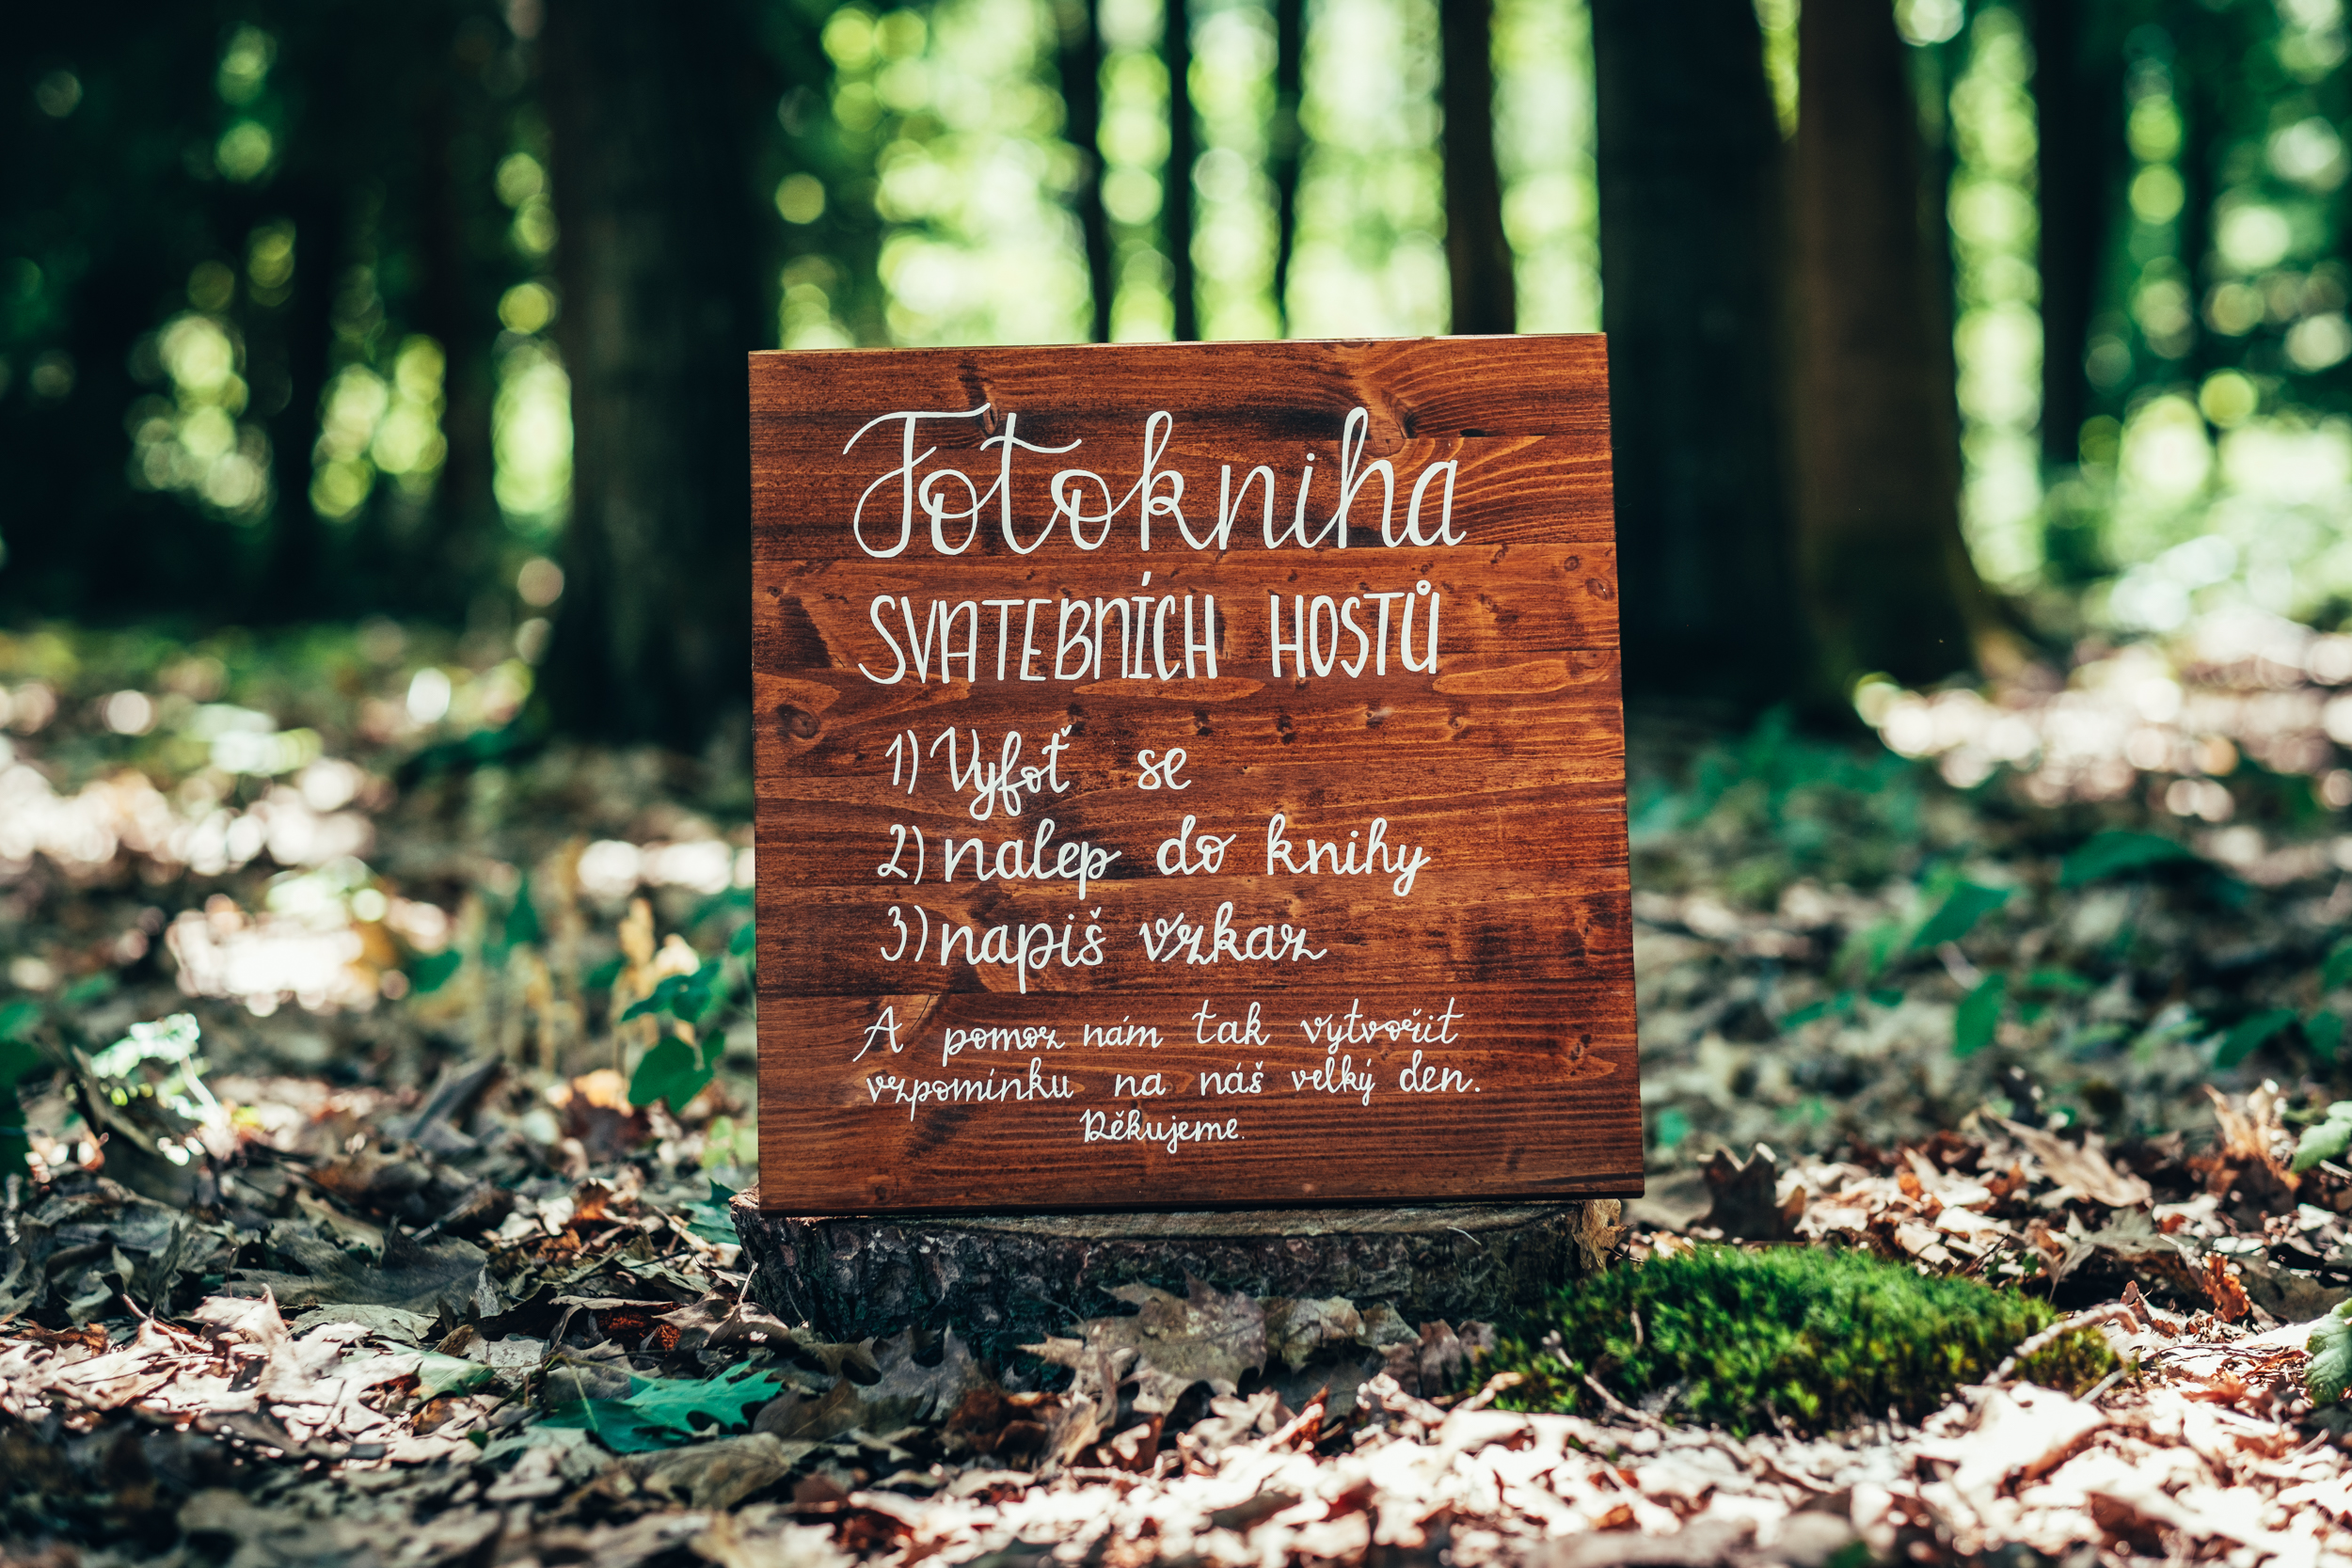 Fotokniha
SVATEBNÍCH HOSTŮ
1) Vyfoť se
2) nalep do knihy
3) napiš vzkaz
A pomoz nám tak vytvořit
vzpomínku na náš velký den.
Děkujeme.